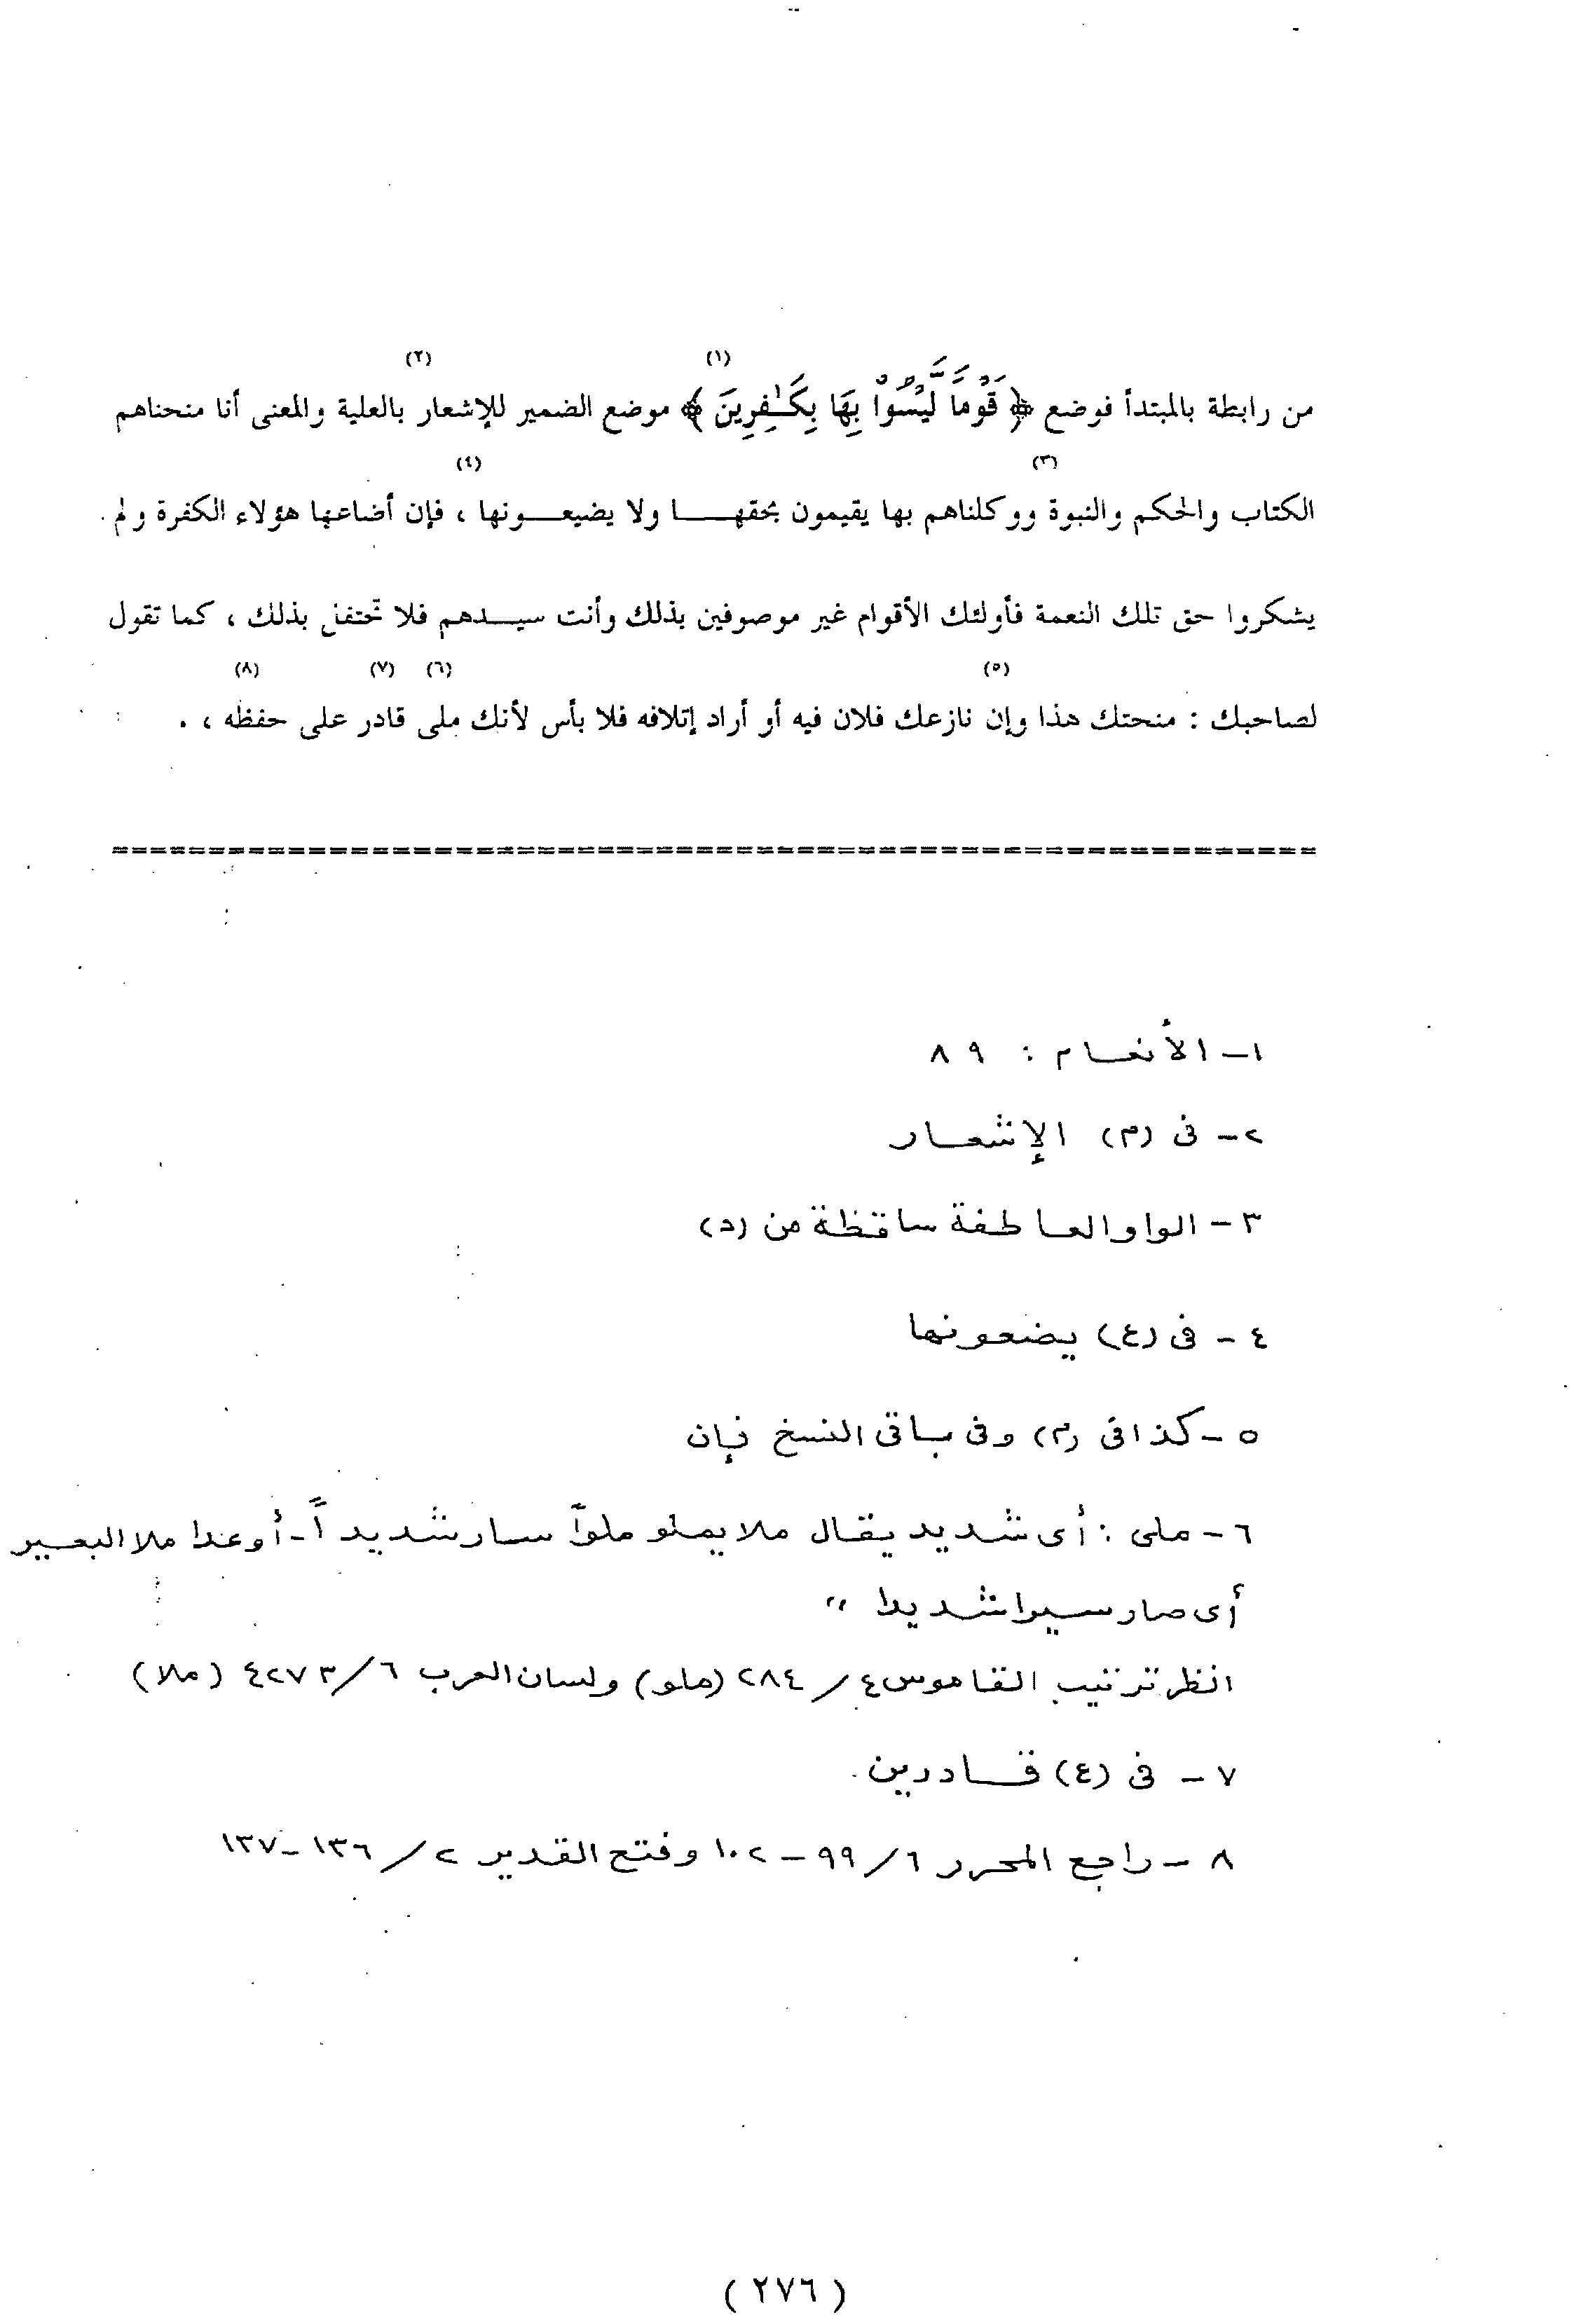 (١) (٢)
من رابطة بالمبتدأ فوضع ﴿ قَوْمًا لَّيْسُوا۟ بِهَا بِكَـٰفِرِينَ ﴾ موضع الضمير للإشعار بالعلية والمعنى أنا منحناهم
(٣) (٤)
الكتاب والحكم والنبوة ووكلناهم بها يقيمون بحقهـا ولا يضيعـونها ، فإن أضاعها هؤلاء الكفرة ولم
يشكروا حق تلك النعمة فأولئك الأقوام غير موصوفين بذلك وأنت سيـدهم فلا تحتفل بذلك ، كما تقول
(٥) (٦) (٧) (٨)
لصاحبك : منحتك هذا وإن نازعك فلان فيه أو أراد إتلافه فلا بأس لأنك ملى قادر على حفظه ، .
==========================================================
١ - الأنعـام : ٨٩
٢ - فى (م) الإشعـار
٣ - الواو العاطفة ساقظة من (د)
٤ - فى (ع) يضعونها
٥ - كذا فى (م) وفى باقى النسخ فإن
٦ - ملى : أى شديد يقال ملا يملو ملواً سار شديداً - أو عدا ملا البعير
أى صار سيرا شديدا "
انظر ترتيب القاموس ٤/ ٢٨٤ (ملو) ولسان العرب ٦/ ٤٢٧٣ (ملا)
٧ - فى (ع) قـادرين .
٨ - راجع المحرر ٦/ ٩٩ - ١٠٢ وفتح القدير ٢/ ١٣٦ - ١٣٧
( ٢٧٦ )